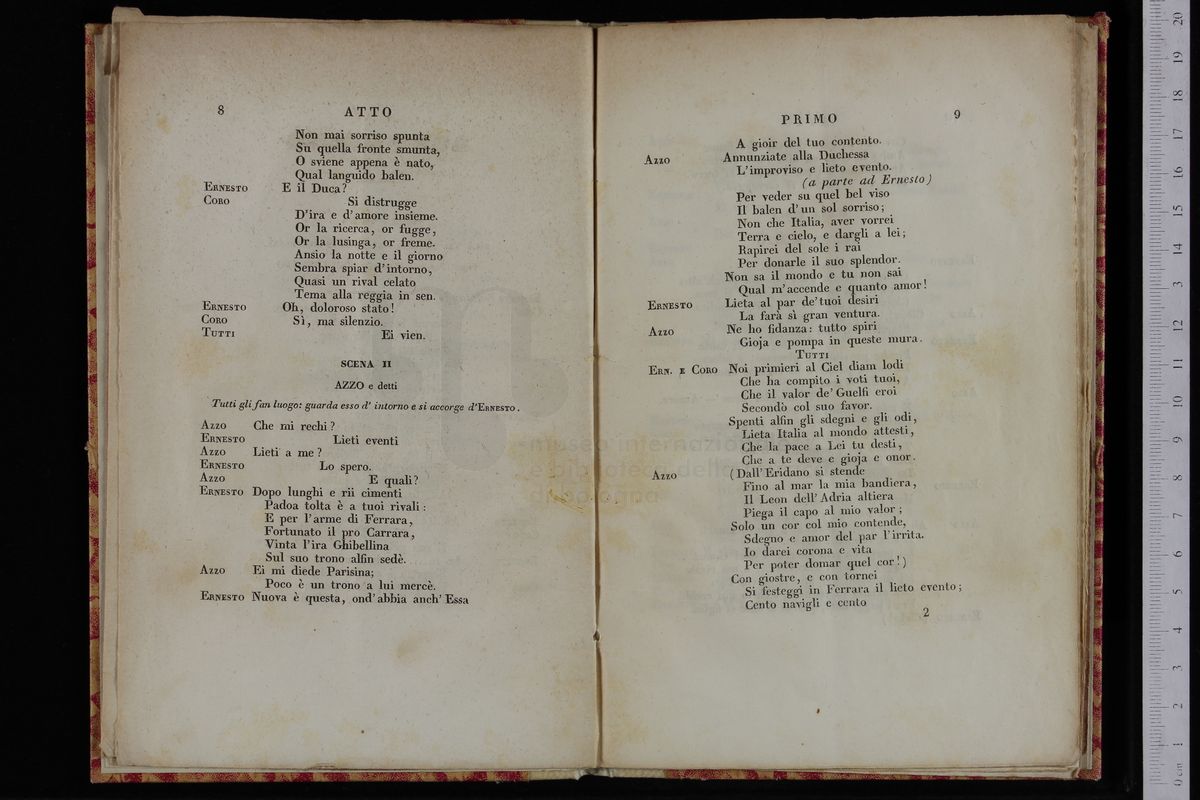 8
ATTO
Non mai sorriso spunta
Su quella fronte smunta,
O sviene appena è nato,
Qual languido balen.
ERNESTO E il Duca?
CORO Si distrugge
D'ira e d'amore insieme.
Or la ricerca, or fugge,
Or la lusinga, or freme.
Ansio la notte e il giorno
Sembra spiar d'intorno,
Quasi un rival celato
Tema alla reggia in sen.
ERNESTO Oh, doloroso stato!
CORO Sì, ma silenzio.
TUTTI Ei vien.
SCENA II
AZZO e detti
Tutti gli fan luogo: guarda esso d' intorno e si accorge d'ERNESTO.
AZZO Che mi rechi?
ERNESTO Lieti eventi
AZZO Lieti a me?
ERNESTO Lo spero.
AZZO E quali?
ERNESTO Dopo lunghi e rii cimenti
Padoa tolta è a tuoi rivali:
E per l'arme di Ferrara,
Fortunato il pro Carrara,
Vinta l'ira Ghibellina
Sul suo trono alfin sedè.
AZZO Ei mi diede Parisina;
Poco è un trono a lui mercè.
ERNESTO Nuova è questa, ond'abbia anch'Essa
PRIMO
9
A gioir del tuo contento.
AZZO Annunziate alla Duchessa
L'improvviso e lieto evento.
(a parte ad Ernesto)
Per veder su quel bel viso
Il balen d'un sol sorriso;
Non che Italia, aver vorrei
Terra e cielo, e dargli a lei;
Rapirei del sole i rai
Per donarle il suo splendor.
Non sa il mondo e tu non sai
Qual m'accende e quanto amor!
ERNESTO Lieta al par de'tuoi desiri
La farà sì gran ventura.
AZZO Ne ho fidanza: tutto spiri
Gioja e pompa in queste mura.
TUTTI
ERN. E CORO Noi primieri al Ciel diam lodi
Che ha compito i voti tuoi,
Che il valor de' Guelfi eroi
Secondò col suo favor.
Spenti alfin gli sdegni e gli odi,
Lieta Italia al mondo attesti,
Che la pace a Lei tu desti,
Che a te deve e gioja e onor.
AZZO (Dall'Eridano si stende
Fino al mar la mia bandiera,
Il Leon dell'Adria altiera
Piega il capo al mio valor;
Solo un cor col mio contende,
Sdegno e amor del par l'irrita.
Io darei corona e vita
Per poter domar quel cor!)
Con giostre, e con tornei
Si festeggi in Ferrara il lieto evento;
Cento navigli e cento
2